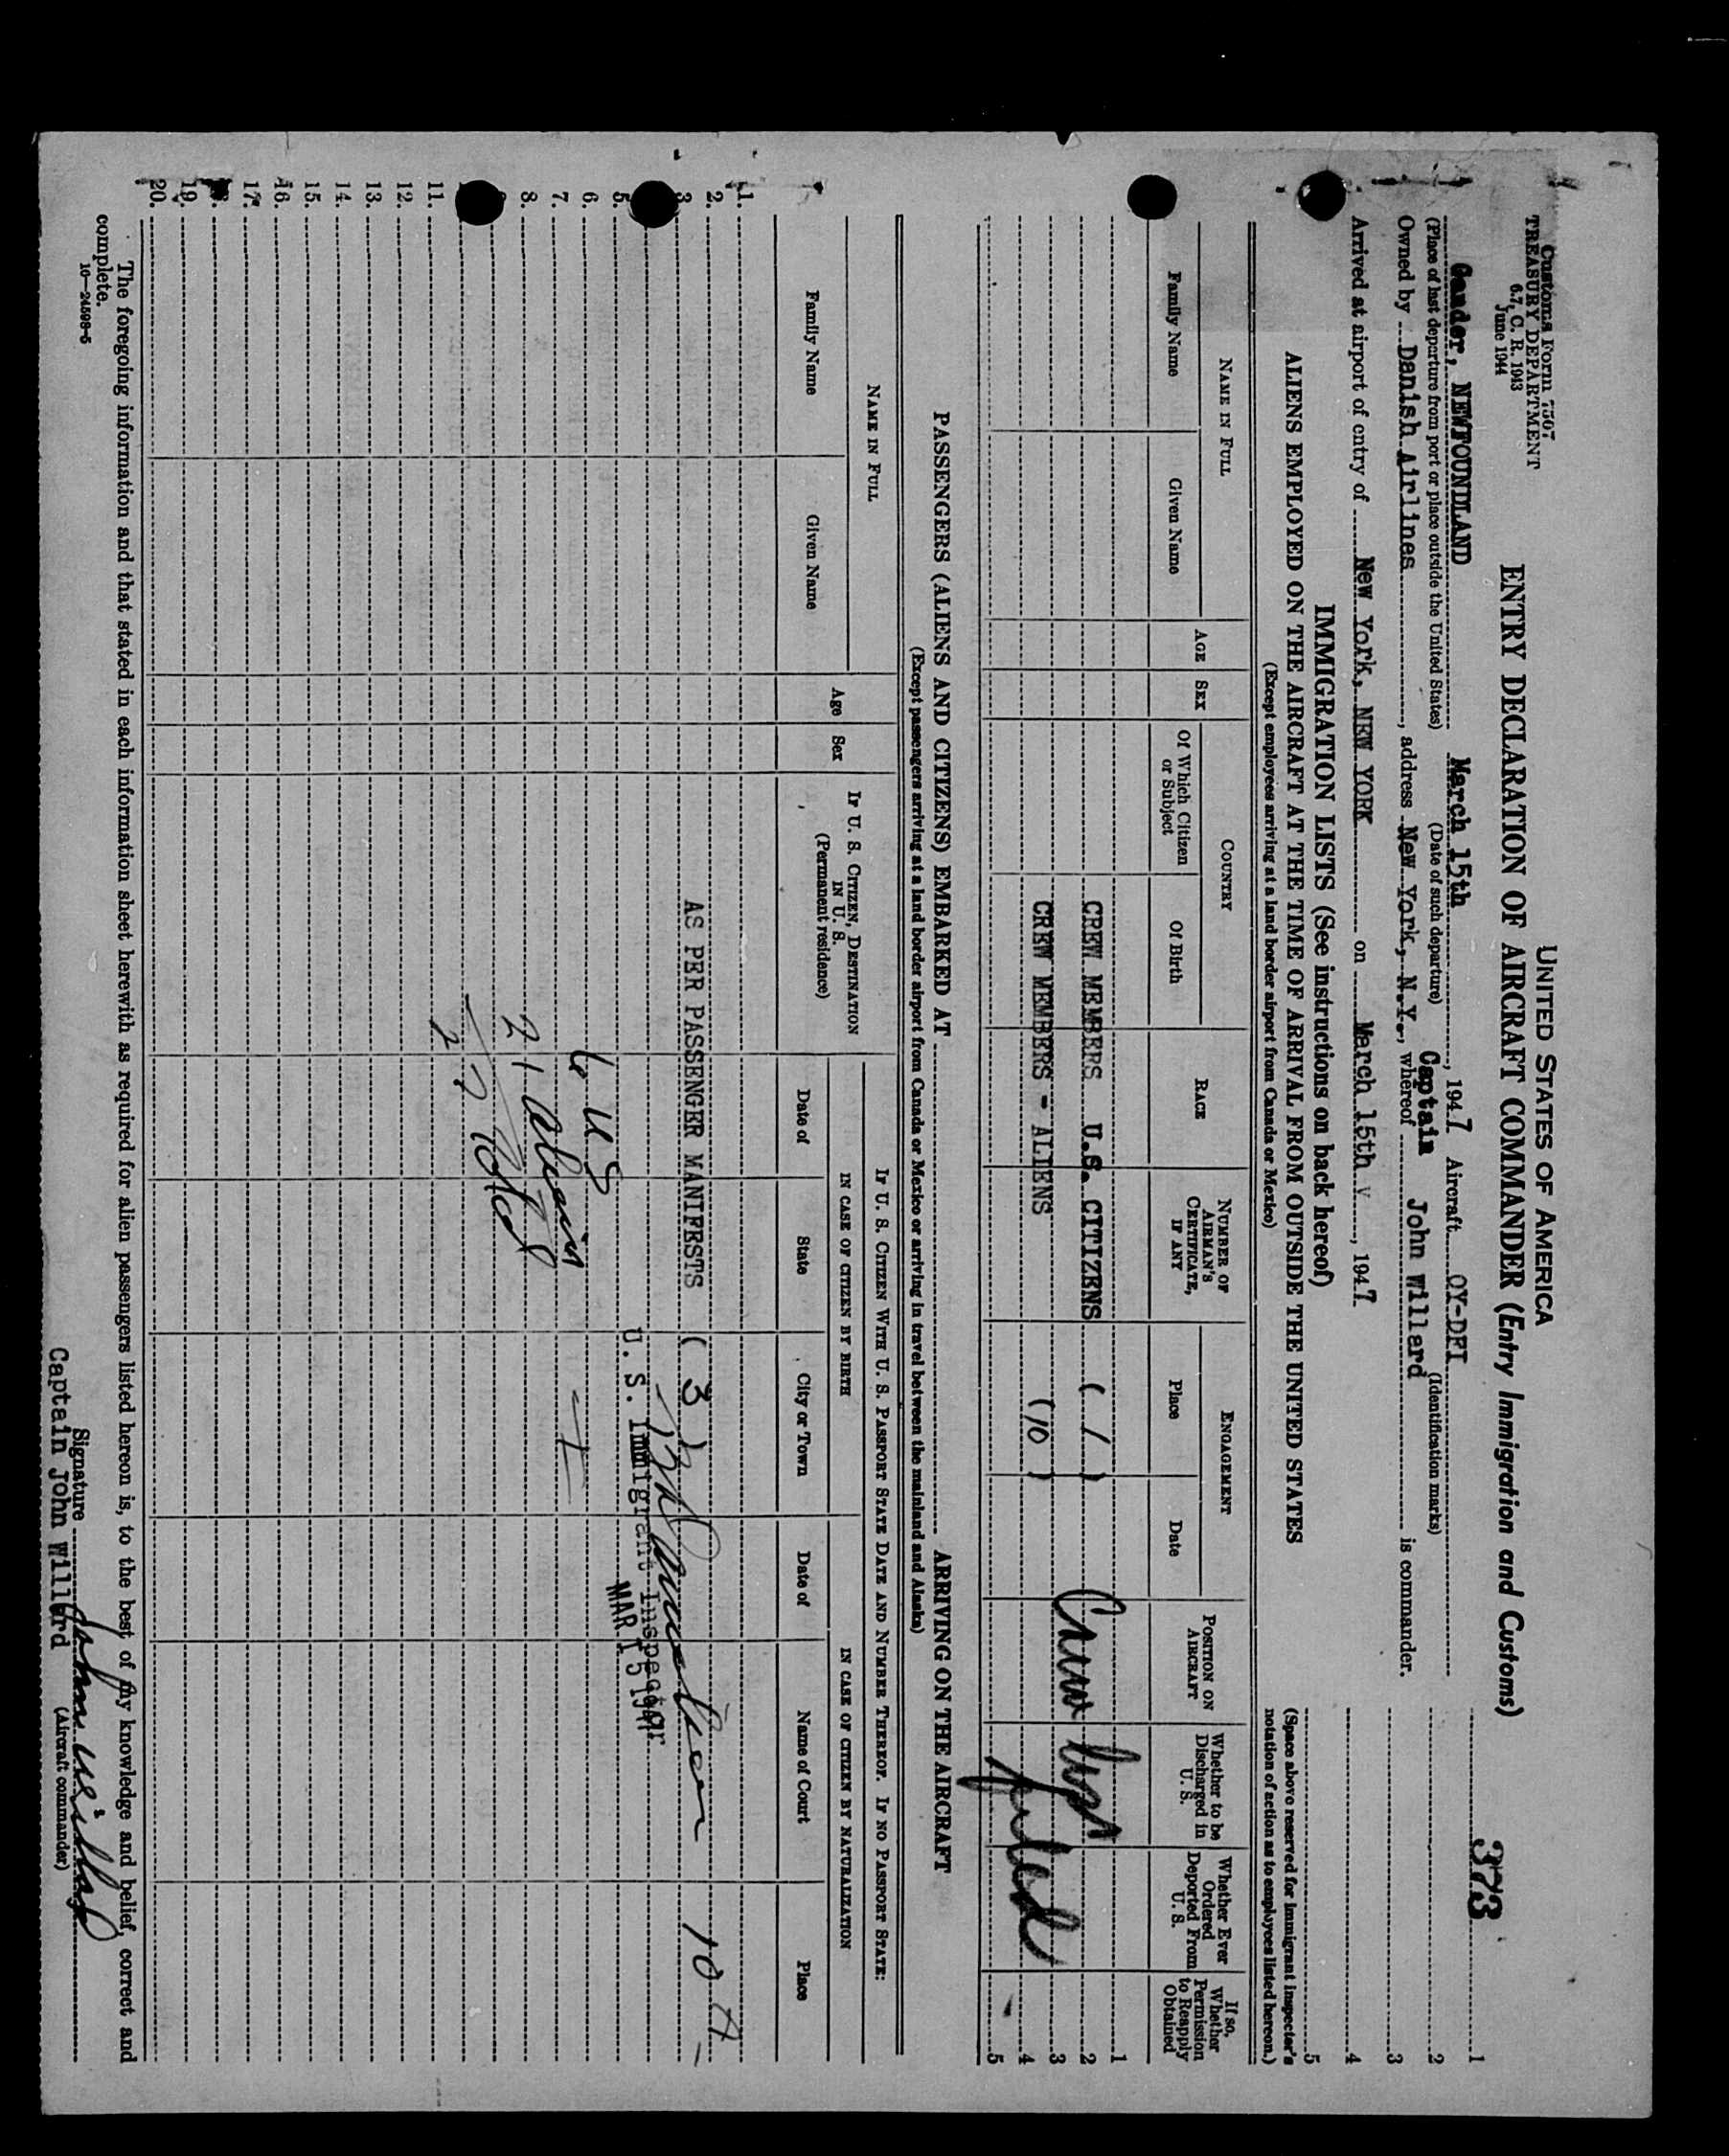 Customs Form 7507
TREASURY DEPARTMENT
6.7, C. R. 1943
June 1944
UNITED STATES OF AMERICA
ENTRY DECLARATION OF AIRCRAFT COMMANDER (Entry Immigration and Customs)
373
Gander, NEWFOUNDLAND March 15th, 1947 Aircraft OY-DFI
(Place of last departure from port or place outside the United States) (Date of such departure) (Identification marks)
Captain John Willard
Owned by Danish Airlines, address New York, N.Y., whereof is commander.
Arrived at airport of entry of New York, NEW YORK on March 15th v, 1947
1
2
3
4
5
(Space above reserved for immigrant inspector's notation of action as to employees listed hereon.)
IMMIGRATION LISTS (See instructions on back hereof)
ALIENS EMPLOYED ON THE AIRCRAFT AT THE TIME OF ARRIVAL FROM OUTSIDE THE UNITED STATES
(Except employees arriving at a land border airport from Canada or Mexico)
NAME IN FULL
Family Name
Given Name
AGE
SEX
COUNTRY
Of Which Citizen or Subject
Of Birth
RACE
NUMBER OF AIRMAN'S CERTIFICATE, IF ANY
ENGAGEMENT
Place
Date
POSITION ON AIRCRAFT
Whether to be Discharged in U. S.
Whether Ever Ordered Deported From U. S.
If so, Whether Permission to Reapply Obtained
1
2
3
4
5
CREW MEMBERS U.S. CITIZENS ( 1 )
CREW MEMBERS - ALIENS (10 )
Crew list
filed
PASSENGERS (ALIENS AND CITIZENS) EMBARKED AT ARRIVING ON THE AIRCRAFT
(Except passengers arriving at a land border airport from Canada or Mexico or arriving in travel between the mainland and Alaska)
NAME IN FULL
Family Name
Given Name
Age
Sex
IF U. S. CITIZEN, DESTINATION IN U. S.
(Permanent residence)
IF U. S. CITIZEN WITH U. S. PASSPORT STATE DATE AND NUMBER THEREOF. IF NO PASSPORT STATE:
IN CASE OF CITIZEN BY BIRTH
Date of
State
City or Town
IN CASE OF CITIZEN BY NATURALIZATION
Date of
Name of Court
Place
1.
2.
3.
AS PER PASSENGER MANIFESTS ( 3 )
10 A
5.
U. S. Immigrant Inspector
MAR 15 1947
6.
6 US
7.
21 Aliens
8.
27 Total
11.
12.
13.
14.
15.
16.
17.
19.
20.
The foregoing information and that stated in each information sheet herewith as required for alien passengers listed hereon is, to the best of my knowledge and belief, correct and
complete.
16—24598-5
Signature John Willard
Captain John Willard (Aircraft commander)